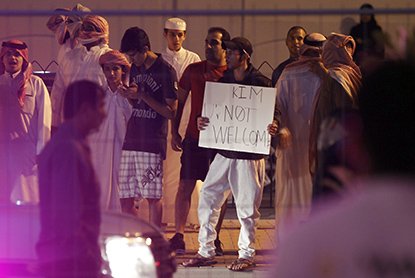 KIM
NOT
WELCOME